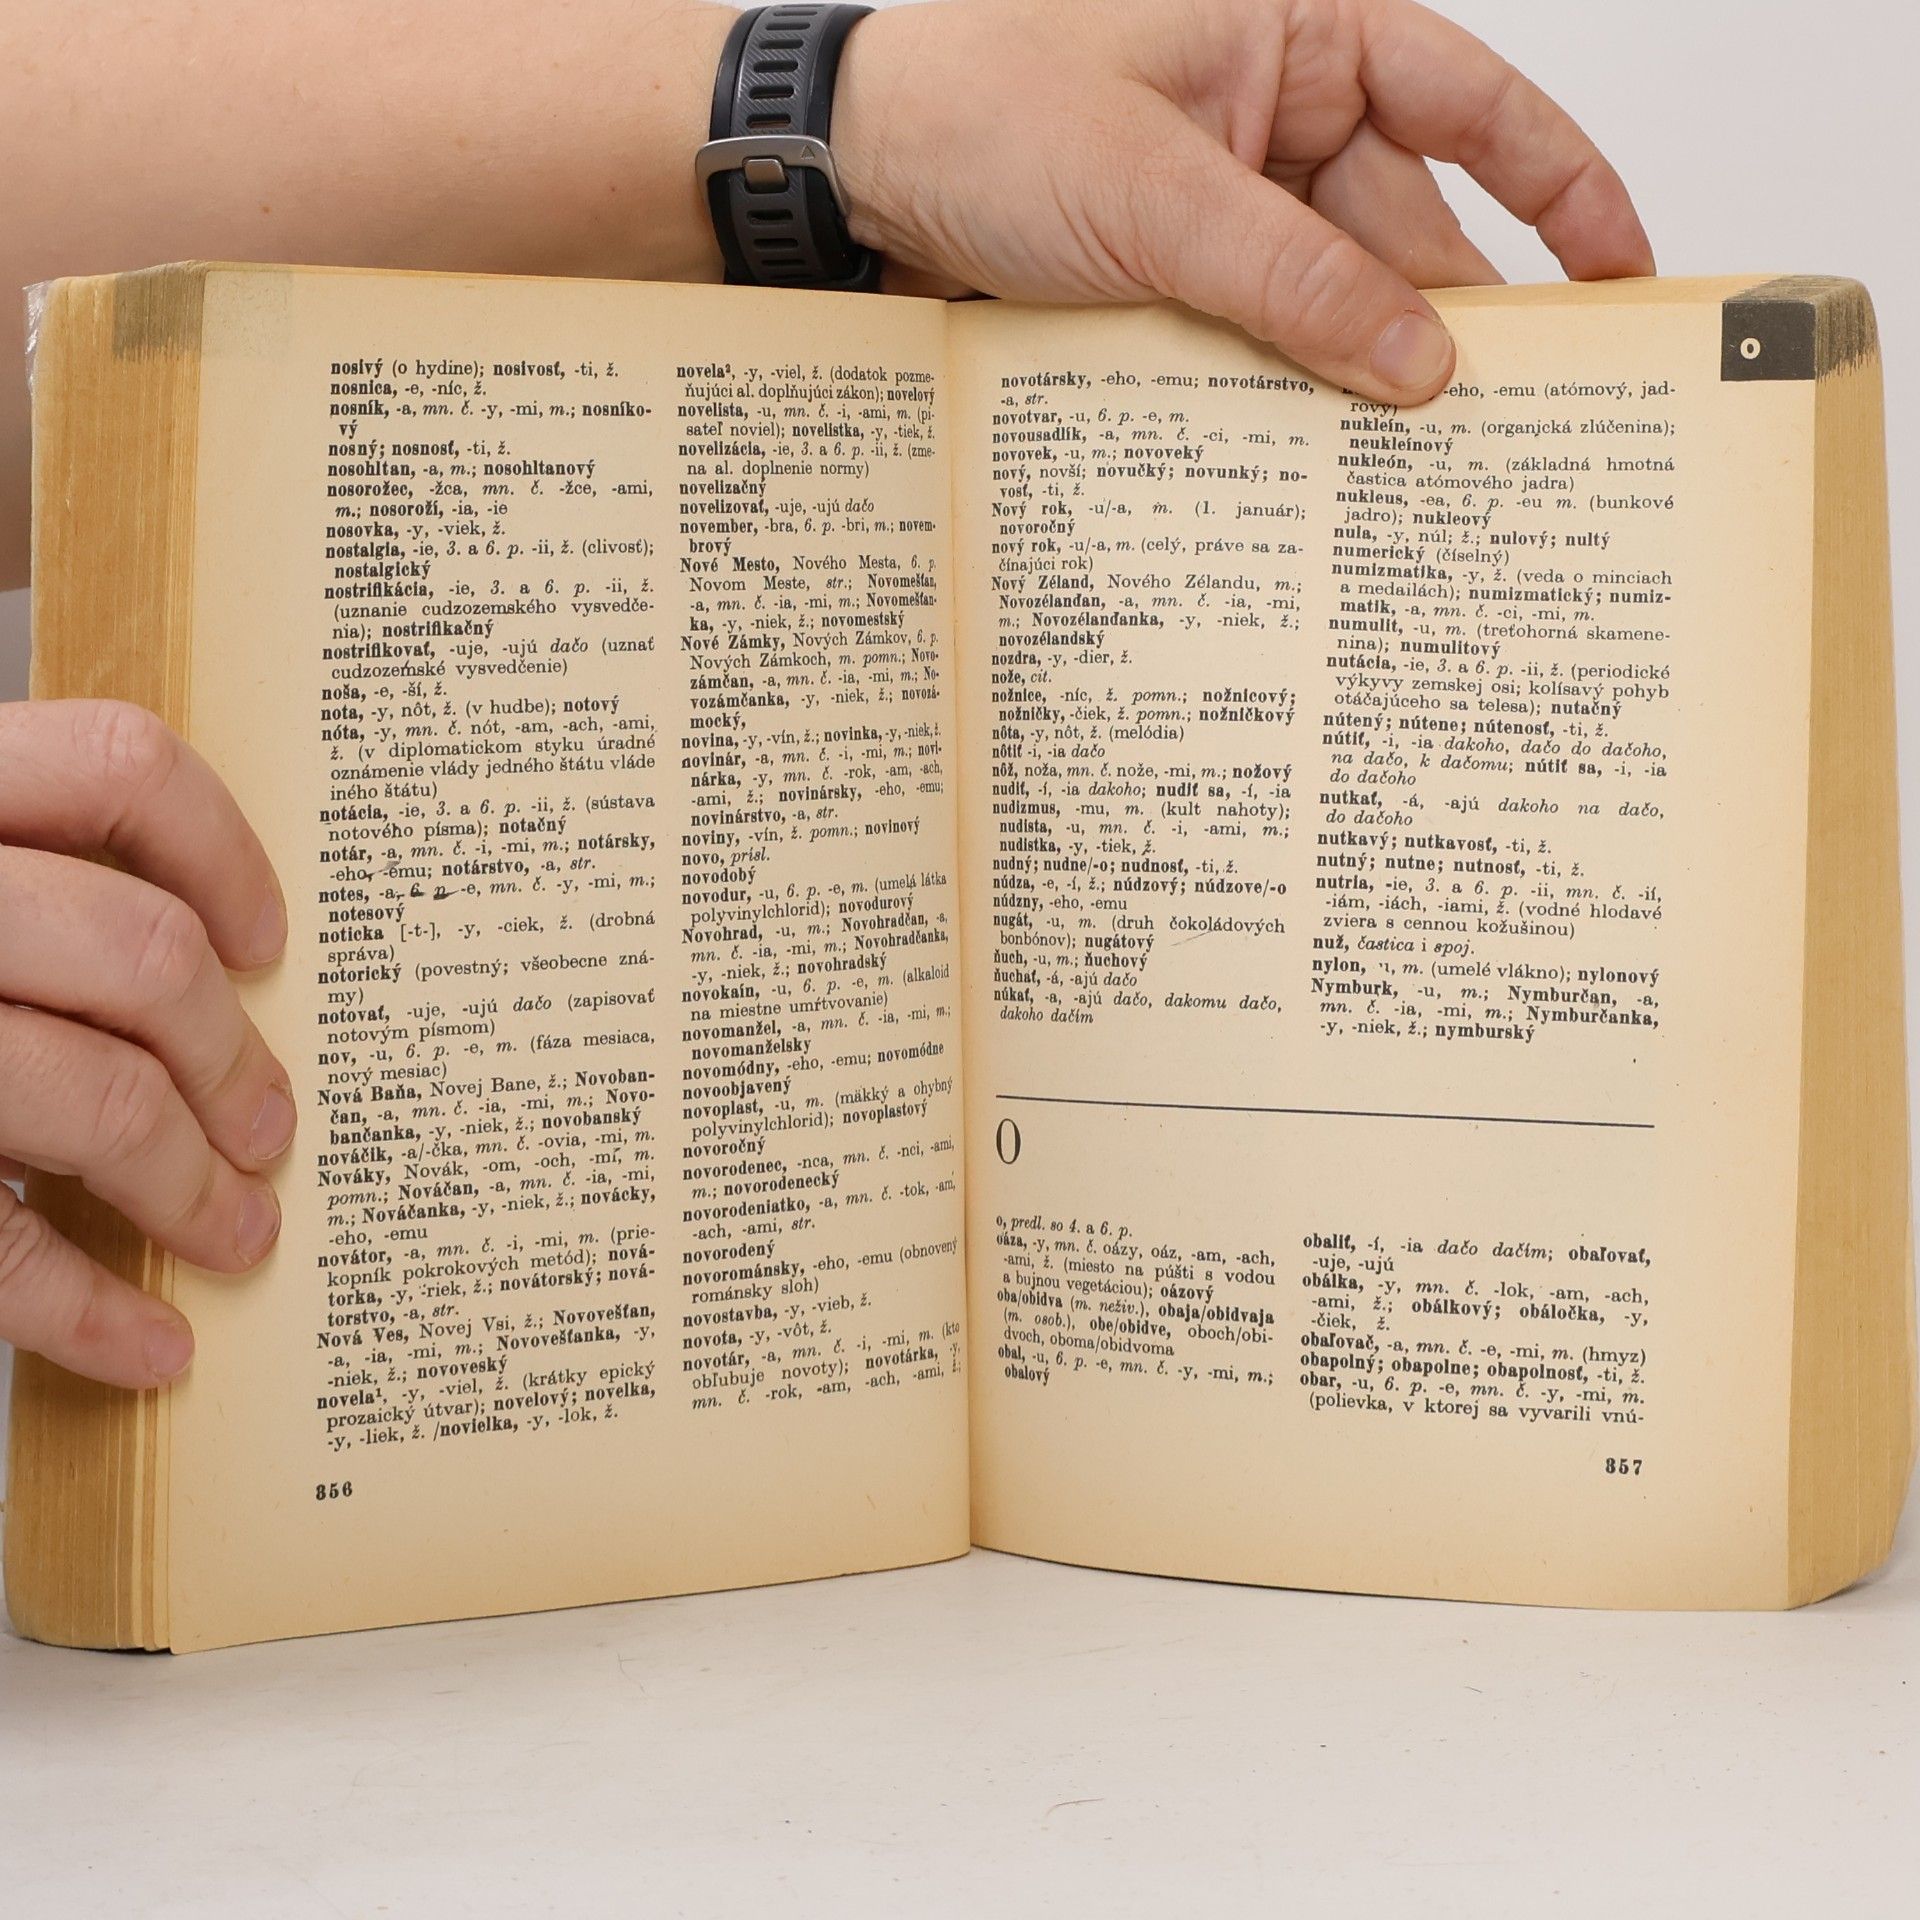 nosivý (o hydine); nosivosť, -ti, ž.
nosnica, -e, -níc, ž.
nosník, -a, mn. č. -y, -mi, m.; nosníko-
vý
nosný; nosnosť, -ti, ž.
nosohltan, -a, m.; nosohltanový
nosorožec, -žca, mn. č. -žce, -ami,
m.; nosoroží, -ia, -ie
nosovka, -y, -viek, ž.
nostalgia, -ie, 3. a 6. p. -ii, ž. (clivosť);
nostalgický
nostrifikácia, -ie, 3. a 6. p. -ii, ž.
(uznanie cudzozemského vysvedče-
nia); nostrifikačný
nostrifikovať, -uje, -ujú dačo (uznať
cudzozemské vysvedčenie)
noša, -e, -ší, ž.
nota, -y, nôt, ž. (v hudbe); notový
nóta, -y, mn. č. nót, -am, -ach, -ami,
ž. (v diplomatickom styku úradné
oznámenie vlády jedného štátu vláde
iného štátu)
notácia, -ie, 3. a 6. p. -ii, ž. (sústava
notového písma); notačný
notár, -a, mn. č. -i, -mi, m.; notársky,
-eho, -emu; notárstvo, -a, str.
notes, -a, 6. p. -e, mn. č. -y, -mi, m.;
notesový
noticka [-t-], -y, -ciek, ž. (drobná
správa)
notorický (povestný; všeobecne zná-
my)
notovať, -uje, -ujú dačo (zapisovať
notovým písmom)
nov, -u, 6. p. -e, m. (fáza mesiaca,
nový mesiac)
Nová Baňa, Novej Bane, ž.; Novoban-
čan, -a, mn. č. -ia, -mi, m.; Novo-
bančanka, -y, -niek, ž.; novobanský
nováčik, -a/-čka, mn. č. -ovia, -mi, m.
Nováky, Novák, -om, -och, -mi, m.
pomn.; Nováčan, -a, mn. č. -ia, -mi,
m.; Nováčanka, -y, -niek, ž.; novácky,
-eho, -emu
novátor, -a, mn. č. -i, -mi, m. (prie-
kopník pokrokových metód); nová-
torka, -y, -riek, ž.; novátorský; nová-
torstvo, -a, str.
Nová Ves, Novej Vsi, ž.; Novovešťan,
-a, -ia, -mi, m.; Novovešťanka, -y,
-niek, ž.; novoveský
novela¹, -y, -viel, ž. (krátky epický
prozaický útvar); novelový; novelka,
-y, -liek, ž. /novielka, -y, -lok, ž.
356
novela², -y, -viel, ž. (dodatok pozme-
ňujúci al. doplňujúci zákon); novelový
novelista, -u, mn. č. -i, -ami, m. (pi-
sateľ noviel); novelistka, -y, -tiek, ž.
novelizácia, -ie, 3. a 6. p. -ii, ž. (zme-
na al. doplnenie normy)
novelizačný
novelizovať, -uje, -ujú dačo
november, -bra, 6. p. -bri, m.; novem-
brový
Nové Mesto, Nového Mesta, 6. p.
Novom Meste, str.; Novomešťan,
-a, mn. č. -ia, -mi, m.; Novomešťan-
ka, -y, -niek, ž.; novomestský
Nové Zámky, Nových Zámkov, 6. p.
Nových Zámkoch, m. pomn.; Novo-
zámčan, -a, mn. č. -ia, -mi, m.; No-
vozámčanka, -y, -niek, ž.; novozá-
mocký,
novina, -y, -vín, ž.; novinka, -y, -niek, ž.
novinár, -a, mn. č. -i, -mi, m.; novi-
nárka, -y, mn. č. -rok, -am, -ach,
-ami, ž.; novinársky, -eho, -emu;
novinárstvo, -a, str.
noviny, -vín, ž. pomn.; novinový
novo, prísl.
novodobý
novodur, -u, 6. p. -e, m. (umelá látka
polyvinylchlorid); novodurový
Novohrad, -u, m.; Novohradčan, -a,
mn. č. -ia, -mi, m.; Novohradčanka,
-y, -niek, ž.; novohradský
novokaín, -u, 6. p. -e, m. (alkaloid
na miestne umŕtvovanie)
novomanžel, -a, mn. č. -ia, -mi, m.;
novomanželsky
novomódny, -eho, -emu; novomódne
novoobjavený
novoplast, -u, m. (mäkký a ohybný
polyvinylchlorid); novoplastový
novoročný
novorodenec, -nca, mn. č. -nci, -ami,
m.; novorodenecký
novorodeniatko, -a, mn. č. -tok, -am,
-ach, -ami, str.
novorodený
novorománsky, -eho, -emu (obnovený
románsky sloh)
novostavba, -y, -vieb, ž.
novota, -y, -vôt, ž.
novotár, -a, mn. č. -i, -mi, m. (kto
obľubuje novoty); novotárka, -y,
mn. č. -rok, -am, -ach, -ami, ž.;
o
novotársky, -eho, -emu; novotárstvo,
-a, str.
novotvar, -u, 6. p. -e, m.
novousadlík, -a, mn. č. -ci, -mi, m.
novovek, -u, m.; novoveký
nový, novší; novučký; novunký; no-
vosť, -ti, ž.
Nový rok, -u/-a, m. (1. január);
novoročný
nový rok, -u/-a, m. (celý, práve sa za-
čínajúci rok)
Nový Zéland, Nového Zélandu, m.;
Novozélanďan, -a, mn. č. -ia, -mi,
m.; Novozélanďanka, -y, -niek, ž.;
novozélandský
nozdra, -y, -dier, ž.
nože, cit.
nožnice, -níc, ž. pomn.; nožnicový;
nožničky, -čiek, ž. pomn.; nožničkový
nôta, -y, nôt, ž. (melódia)
nôtiť -i, -ia dačo
nôž, noža, mn. č. nože, -mi, m.; nožový
nudiť, -í, -ia dakoho; nudiť sa, -í, -ia
nudizmus, -mu, m. (kult nahoty);
nudista, -u, mn. č. -i, -ami, m.;
nudistka, -y, -tiek, ž.
nudný; nudne/-o; nudnosť, -ti, ž.
núdza, -e, -í, ž.; núdzový; núdzove/-o
núdzny, -eho, -emu
nugát, -u, m. (druh čokoládových
bonbónov); nugátový
ňuch, -u, m.; ňuchový
ňuchať, -á, -ajú dačo
núkať, -a, -ajú dačo, dakomu dačo,
dakoho dačím
-eho, -emu (atómový, jad-
rový)
nukleín, -u, m. (organická zlúčenina);
neukleínový
nukleón, -u, m. (základná hmotná
častica atómového jadra)
nukleus, -ea, 6. p. -eu m. (bunkové
jadro); nukleový
nula, -y, núl; ž.; nulový; nultý
numerický (číselný)
numizmatika, -y, ž. (veda o minciach
a medailách); numizmatický; numiz-
matik, -a, mn. č. -ci, -mi, m.
numulit, -u, m. (treťohorná skamene-
nina); numulitový
nutácia, -ie, 3. a 6. p. -ii, ž. (periodické
výkyvy zemskej osi; kolísavý pohyb
otáčajúceho sa telesa); nutačný
nútený; nútene; nútenosť, -ti, ž.
nútiť, -i, -ia dakoho, dačo do dačoho,
na dačo, k dačomu; nútiť sa, -i, -ia
do dačoho
nutkať, -á, -ajú dakoho na dačo,
do dačoho
nutkavý; nutkavosť, -ti, ž.
nutný; nutne; nutnosť, -ti, ž.
nutria, -ie, 3. a 6. p. -ii, mn. č. -ií,
-iám, -iách, -iami, ž. (vodné hlodavé
zviera s cennou kožušinou)
nuž, častica i spoj.
nylon, -u, m. (umelé vlákno); nylonový
Nymburk, -u, m.; Nymburčan, -a,
mn. č. -ia, -mi, m.; Nymburčanka,
-y, -niek, ž.; nymburský
O
o, predl. so 4. a 6. p.
oáza, -y, mn. č. oázy, oáz, -am, -ach,
-ami, ž. (miesto na púšti s vodou
a bujnou vegetáciou); oázový
oba/obidva (m. neživ.), obaja/obidvaja
(m. osob.), obe/obidve, oboch/obi-
dvoch, oboma/obidvoma
obal, -u, 6. p. -e, mn. č. -y, -mi, m.;
obalový
obaliť, -í, -ia dačo dačím; obaľovať,
-uje, -ujú
obálka, -y, mn. č. -lok, -am, -ach,
-ami, ž.; obálkový; obáločka, -y,
-čiek, ž.
obaľovač, -a, mn. č. -e, -mi, m. (hmyz)
obapolný; obapolne; obapolnosť, -ti, ž.
obar, -u, 6. p. -e, mn. č. -y, -mi, m.
(polievka, v ktorej sa vyvarili vnú-
357